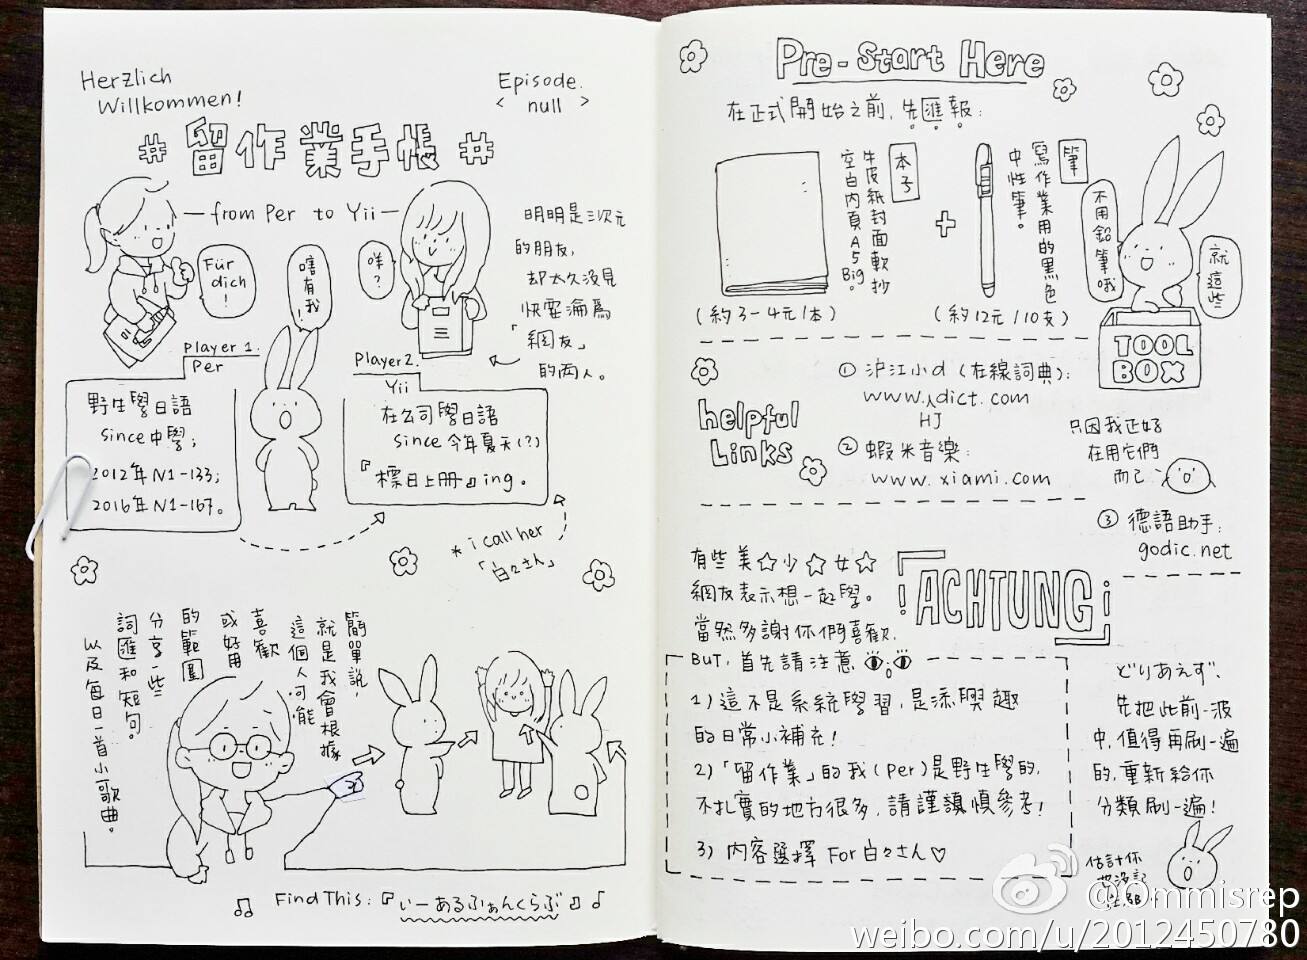 Herzlich
Willkommen!
Episode.
< null >
# 留作業手帳 #
— from Per to Yii —
Für
dich
!
嗐有我!
咩?
明明是三次元
的朋友,
却太久没見
快要淪爲
「網友」
的两人。
Player 1.
Per
野生學日語
since中學;
2012年N1-133;
2016年N1-167。
Player 2.
Yii
在公司學日語
since 今年夏天(?)
『標日上冊』ing。
* i call her
「白々さん」
簡單説,
就是我會根據
這個人可能
喜歡
或好用
的範圍
分享一些
詞匯和短句。
以及每日一首小歌曲。
♫ Find This:『いーあるふぁんくらぶ』♫ ♪
Pre-Start Here
在正式開始之前,先匯報:
本子
牛皮紙封面軟抄
空白内頁A5 Big。
(約3-4元/本)
+
筆
寫作業用的黑色
中性筆。
(約12元/10支)
不用鉛筆哦
就這些
TOOL
BOX
helpful
Links
① 沪江小d(在線詞典):
www.dict.com
HJ
② 蝦米音樂:
www.xiami.com
只因我正好
在用它們
而已
③ 德語助手:
godic.net
有些美☆少☆女☆
網友表示想一起學。
當然多謝你們喜歡,
BUT,首先請注意
!ACHTUNG!
1)這不是系統學習,是添興趣
的日常小補充!
2)「留作業」的我(Per)是野生學的,
不扎實的地方很多,請謹謹慎參考!
3)内容選擇 For白々さん♡
どりあえず、
先把此前一波
中,值得再刷一遍
的,重新給你
分類刷一遍!
估計你
也没記
@Ommisrep
weibo.com/u/2012450780